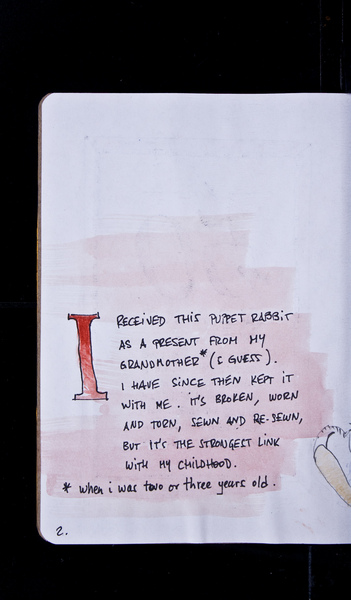 I RECEIVED THIS PUPPET RABBIT
AS A PRESENT FROM MY
GRANDMOTHER* (I GUESS).
I HAVE SINCE THEN KEPT IT
WITH ME. IT'S BROKEN, WORN
AND TORN, SEWN AND RE-SEWN,
BUT IT'S THE STRONGEST LINK
WITH MY CHILDHOOD.
* when i was two or three years old.
2.